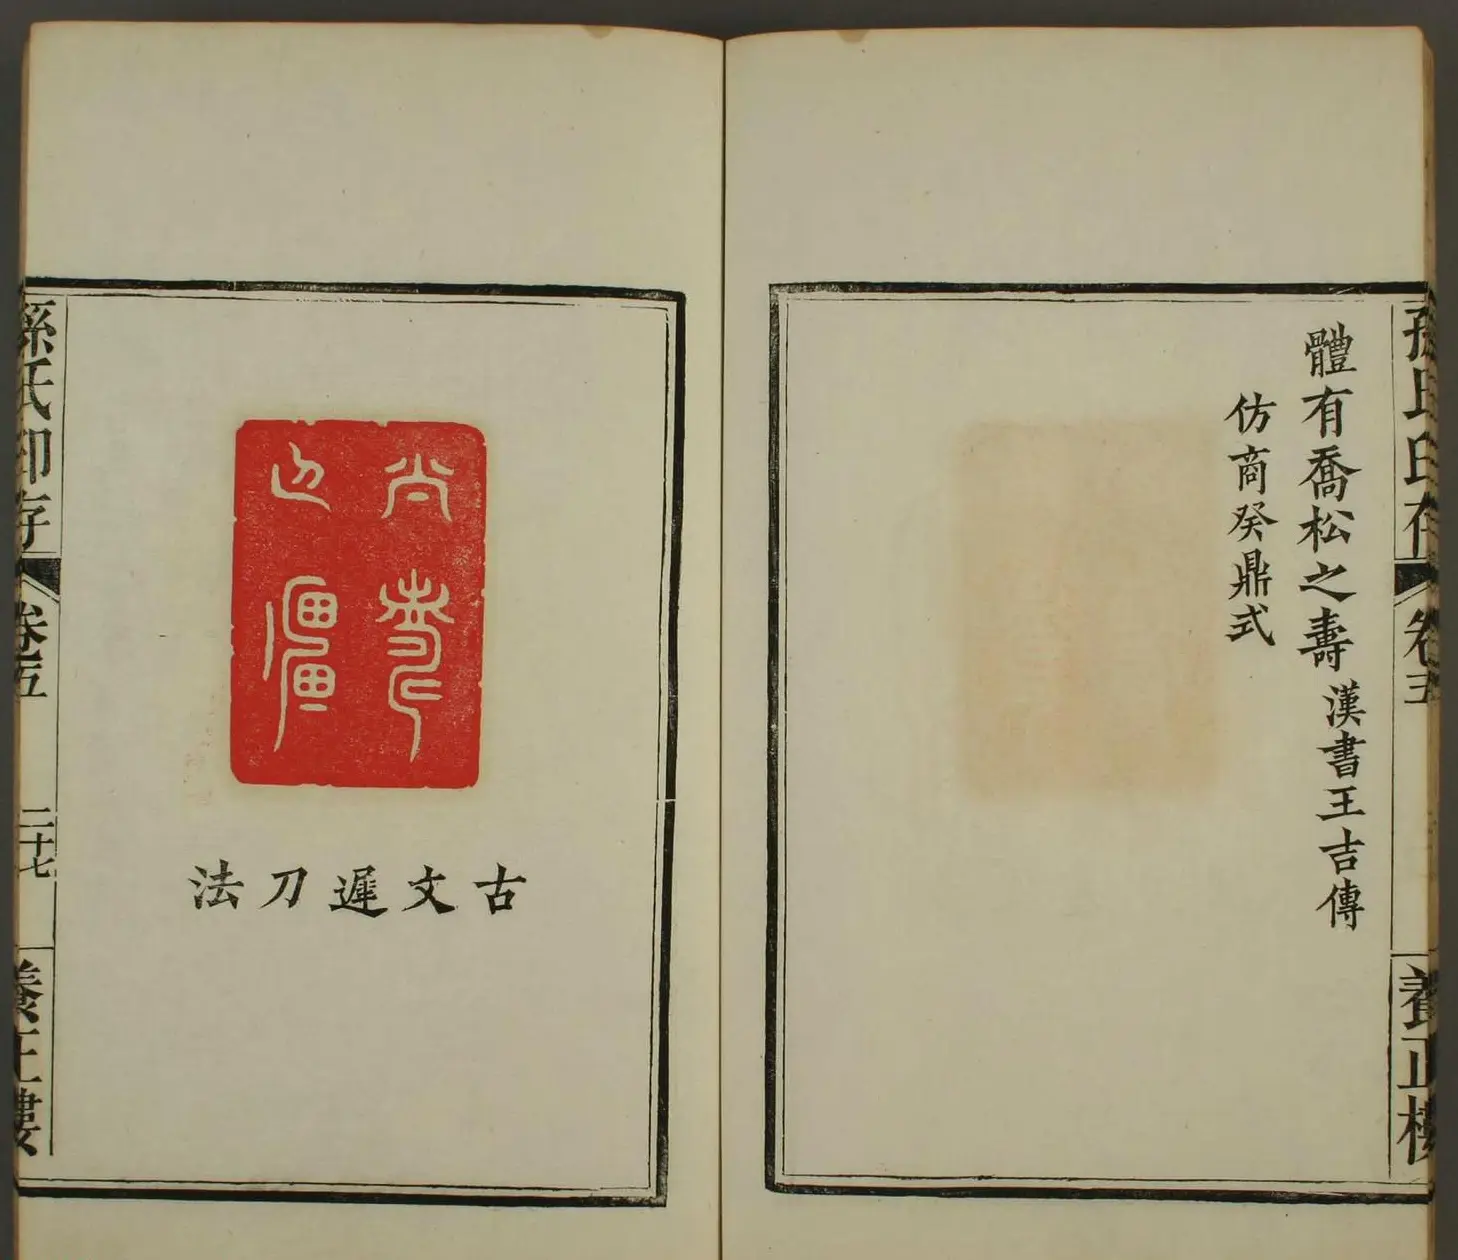 孫氏印存
卷五
養正樓
體有喬松之壽 漢書王吉傳
仿商癸鼎式
古文遲刀法
孫氏印存
卷五
二十七
養正樓